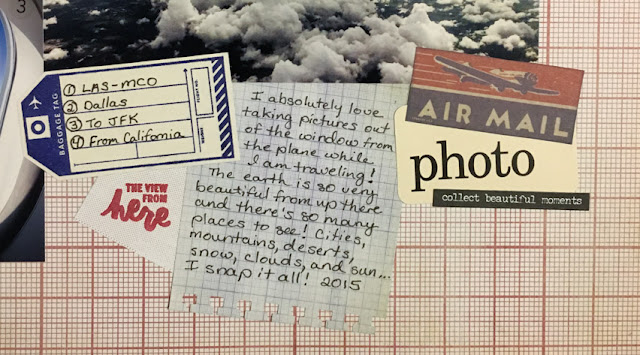 3
BAGGAGE TAG
① LAS-MCO
② Dallas
③ To JFK
④ From California
THE VIEW
FROM
here
I absolutely love
taking pictures out
of the window from
the plane while
I am traveling!
The earth is so very
beautiful from up there
and there's so many
places to see! Cities,
mountains, deserts,
snow, clouds, and sun...
I snap it all! 2015
AIR MAIL
photo
collect beautiful moments